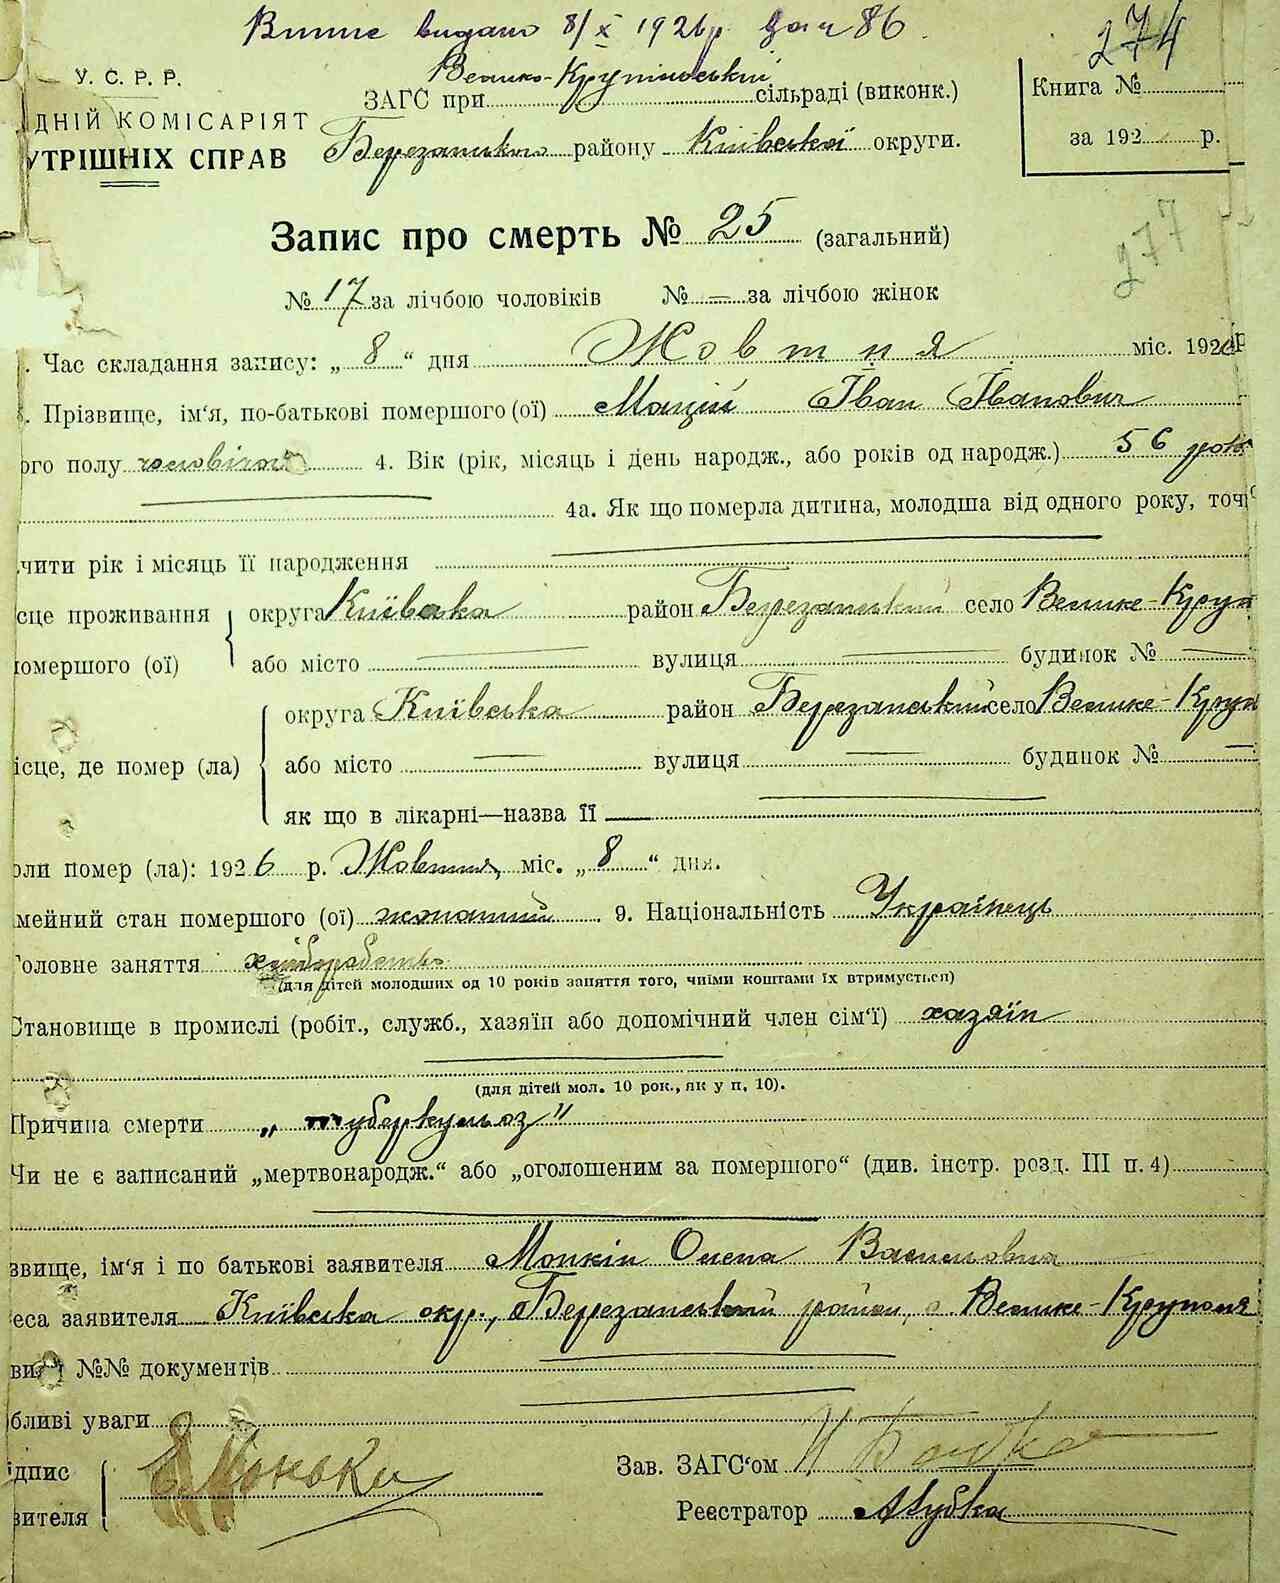 Випис видано 8/X 1926 р. за ч 86.
274
У. С. Р. Р.
Велико-Крупільський
ЗАГС при сільраді (виконк.)
Книга №
ДНІЙ КОМІСАРІЯТ
Березанського району Київської округи.
за 192 р.
УТРІШНІХ СПРАВ
Запис про смерть № 25 (загальний)
277
№ 17 за лічбою чоловіків № — за лічбою жінок
Час складання запису: „ 8 “ дня Жовтня міс. 1926 р
Прізвище, ім‘я, по-батькові помершого (ої) Мацій Іван Іванович
ого полу чоловічого 4. Вік (рік, місяць і день народж., або років од народж.) 56 рок
4а. Як що померла дитина, молодша від одного року, точ
чити рік і місяць її народження
сце проживання округа Київська район Березанський село Велике-Круп
омершого (ої) або місто — вулиця — будинок № —
округа Київська район Березанський село Велике-Круп
ісце, де помер (ла) або місто — вулиця — будинок № —
як що в лікарні—назва її —
оли помер (ла): 1926 р. Жовтня, міс. „ 8 “ дня.
мейний стан помершого (ої) жонатий 9. Національність Українець
Головне заняття хліборобство
(для дітей молодших од 10 років заняття того, чиїми коштами їх втримується)
Становище в промислі (робіт., служб., хазяїн або допомічний член сім‘ї) хазяїн
(для дітей мол. 10 рок., як у п. 10).
Причина смерти „туберкульоз"
Чи не є записаний „мертвонародж.“ або „оголошеним за помершого“ (див. інстр. розд. III п. 4)
звище, ім‘я і по батькові заявителя Олена Василовна
еса заявителя Київська окр., Березанський район, с Велике-Крупол
ви №№ документів
бливі уваги
ідпис
вителя
Зав. ЗАГС‘ом
Реєстратор